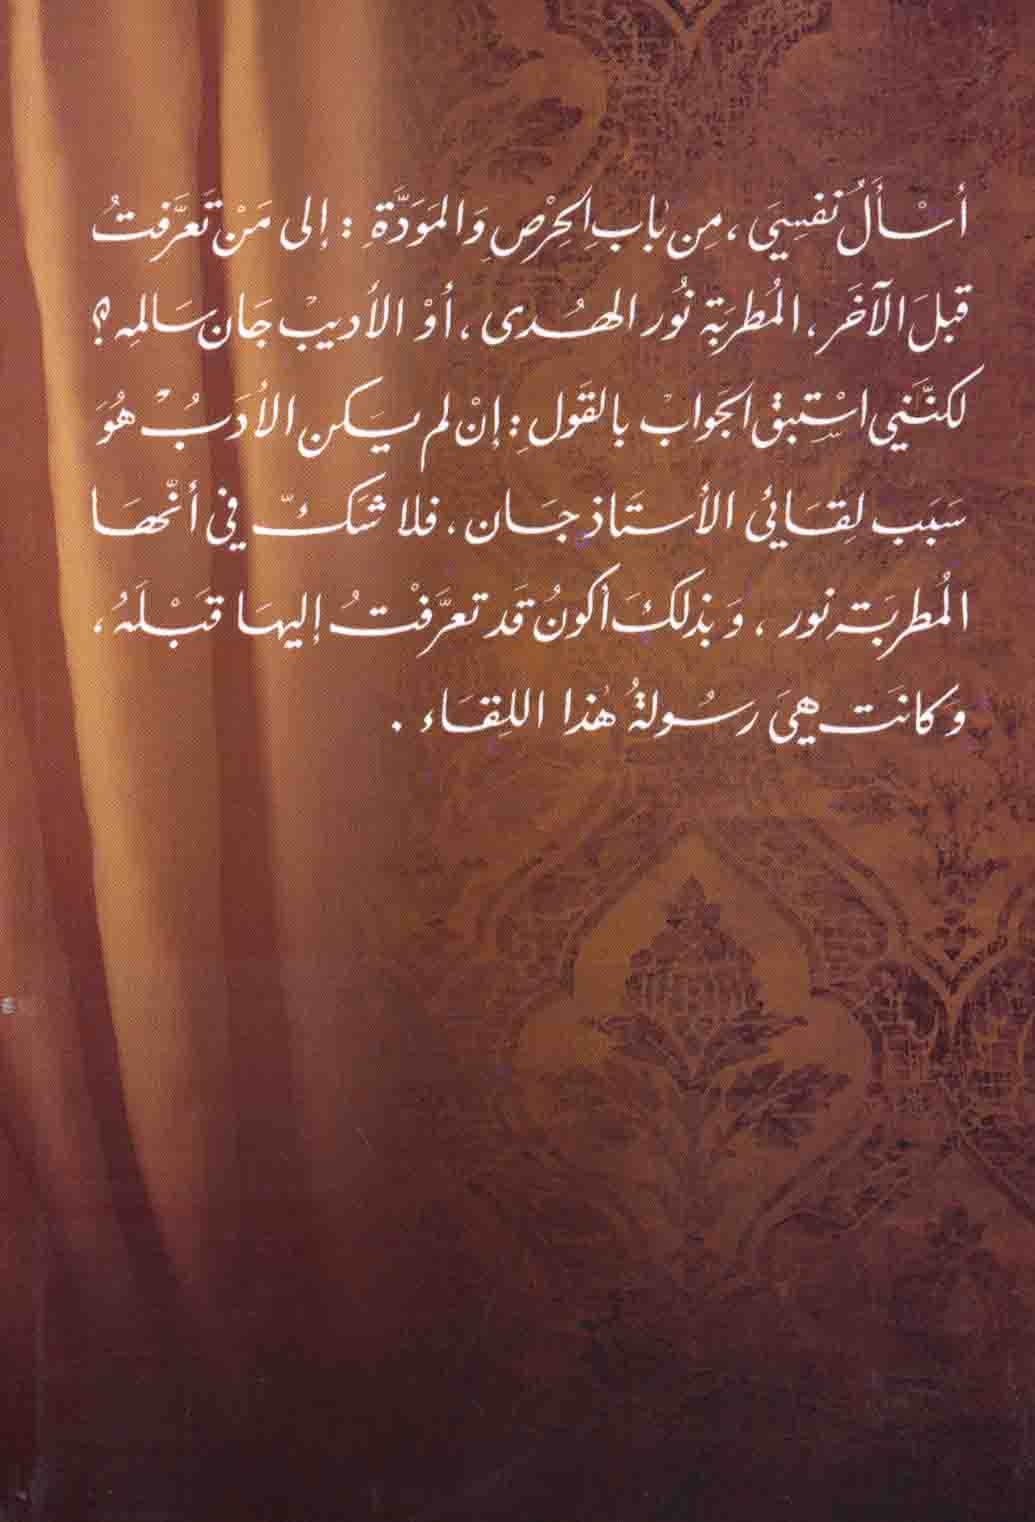 أسْأَلُ نفسِيَ، مِن بابِ الحِرْصِ وَالمَوَدَّةِ: إلى مَنْ تَعَرَّفتُ
قبلَ الآخَر، المُطربَةِ نُور الهُدى، أوْ الأديبْ جَان سَالمِ؟
لكنَّني اسْتِبق الجَوابْ بالقَولِ: إنْ لم يَكن الأدَبُ هُوَ
سَبَب لِقَائي الأستَاذ جَان، فلا شَكّ في أنّهَا
المُطربَة نور، وَبذلكَ أكونُ قَد تعرَّفْتُ إليهَا قَبْلَهُ،
وكانَت هِيَ رسُولةُ هٰذا اللِقَاء.